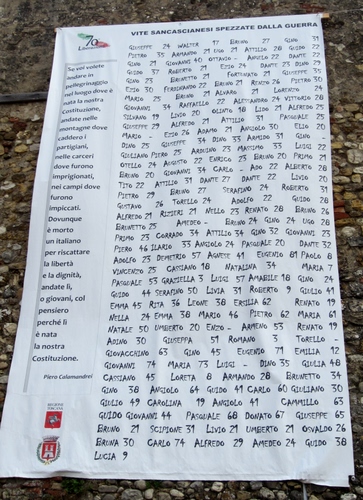 70
VITE SANCASCIANESI SPEZZATE DALLA GUERRA
Se voi volete
andare in
pellegrinaggio
nel luogo dove è
nata la nostra
Costituzione,
andate nelle
montagne dove
caddero i
partigiani,
nelle carceri
dove furono
imprigionati,
nei campi dove
furono
impiccati.
Dovunque
è morto
un italiano
per riscattare
la libertà
e la dignità,
andate lì,
o giovani, col
pensiero
perché lì
è nata
la nostra
Costituzione.
Piero Calamandrei
REGIONE
TOSCANA
GIUSEPPE 24 WALTER 17 BRUNO 27 GINO 31
PIETRO 35 ARMANDO 21 UGO 21 ATTILIO 28 GUIDO 22
GINO 21 GIOVANNI 40 OTTAVIO - ANGIOLO 22 DANTE 22
GUIDO 37 ROBERTO 21 EZIO 24 DANTE 23 DINO 29
GINO 23 BRUNETTO 21 FORTUNATO 21 GIUSEPPE 35
EZIO 30 FERDINANDO 22 BRUNO 21 RENZO 21 PIETRO 20
MARIO 25 BRUNO 21 ALVARO 21 LORENZO 24
GIOVANNI 34 RAFFAELLO 22 ALESSANDRO 24 VITTORIO 28
SILVANO 19 LIVIO 20 OLINTO 48 LIDO 21 ALFREDO 25
GIUSEPPE 29 ALFREDO 21 ATTILIO 31 PASQUALE 25
MARIO - EZIO 26 ADAMO 21 ANGIOLO 30 ELIO 20
DINO 25 GIUSEPPE 34 DINO 33 ARMIDO 31 GINO -
GIULIANO PIERO 25 ARDUINO 23 MASSIMO 33 LUIGI 22
OTELLO 24 AUGUSTO 22 ENRICO 23 BRUNO 20 PRIMO 21
BRUNO 20 GIOVANNI 34 CARLO - ADO 22 ALBERTO 28
TITO 22 ATTILIO 31 DANTE 27 DANTE 22 LIVIO 20
PIETRO 29 BRUNO 27 SERAFINO 24 ROBERTO 31
GUSTAVO 26 TORELLO 24 ADOLFO 22 GUIDO 28
ALFREDO 21 RIZIERI 21 NELLO 23 RENATO 28 BRUNO 26
BRUNETTO 25 AMEDEO - BRUNO 24 GINO 24 UGO 28
PRIMO 23 CORRADO 34 ATTILIO 34 GINO 32 GIOVANNI 23
PIERO 46 ILARIO 33 ANGIOLO 24 PASQUALE 20 DANTE 32
ADOLFO 23 DEMETRIO 57 AGNESE 41 EUGENIO 81 PAOLO 8
VINCENZO 25 CASSIANO 18 NATALINA 34 MARIA 7
PASQUALE 53 GRAZIELLA 3 LUIGI 57 AMABILE 18 GINO 24
GUIDO 44 SERAFINO 50 LIVIA 31 ROBERTO 9 GIULIO 41
EMMA 45 RITA 36 LEONE 38 ERSILIA 62 RENATO 19
NELLA 24 EMMA 38 MARIO 46 PIETRO 62 MARIA 61
NATALE 50 UMBERTO 20 ENZO - ARMENO 53 RENATO 19
ADINO 30 GIUSEPPA 51 ROMANO 3 TORELLO -
GIOVACCHINO 63 GINO 45 EUGENIO 71 EMILIA 12
GIOVANNI 74 MARIA 73 LUIGI - DINO 35 GIULIA 48
CASSIANO 45 LORETA 8 ARMANDO 28 BRUNETTO 34
GINO 38 ANGIOLO 64 GUIDO 41 CARLO 60 GIULIANO 30
GIULIO 49 CAROLINA 19 ANGIOLO 41 CAMMILLO 63
GUIDO GIOVANNI 44 PASQUALE 68 DONATO 67 GIUSEPPE 65
BRUNO 21 SCIPIONE 31 LIVIO 21 UMBERTO 21 OSVALDO 26
BRUNA 30 CARLO 74 ALFREDO 29 AMEDEO 24 GUIDO 38
LUCIA 9